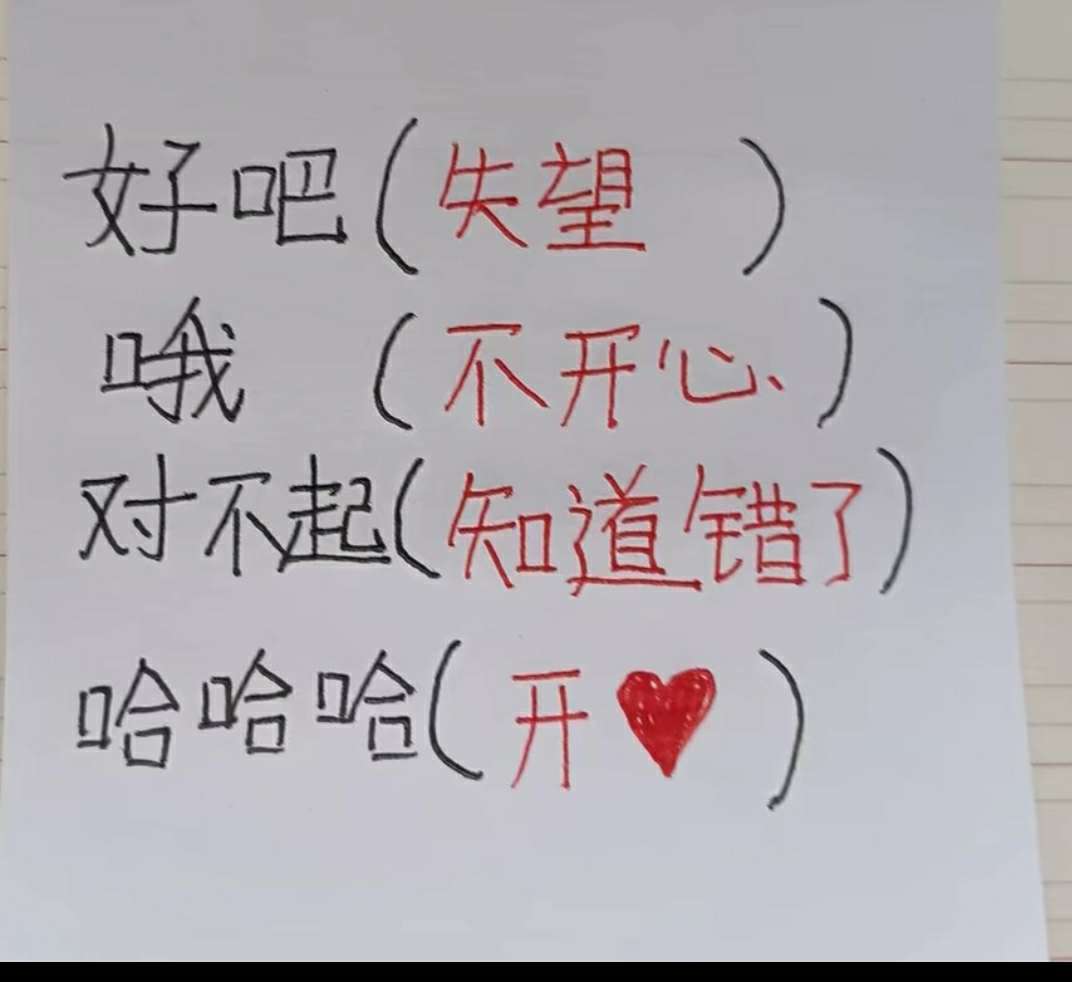 好吧(失望)
哦(不开心)
对不起(知道错了)
哈哈哈(开♥)